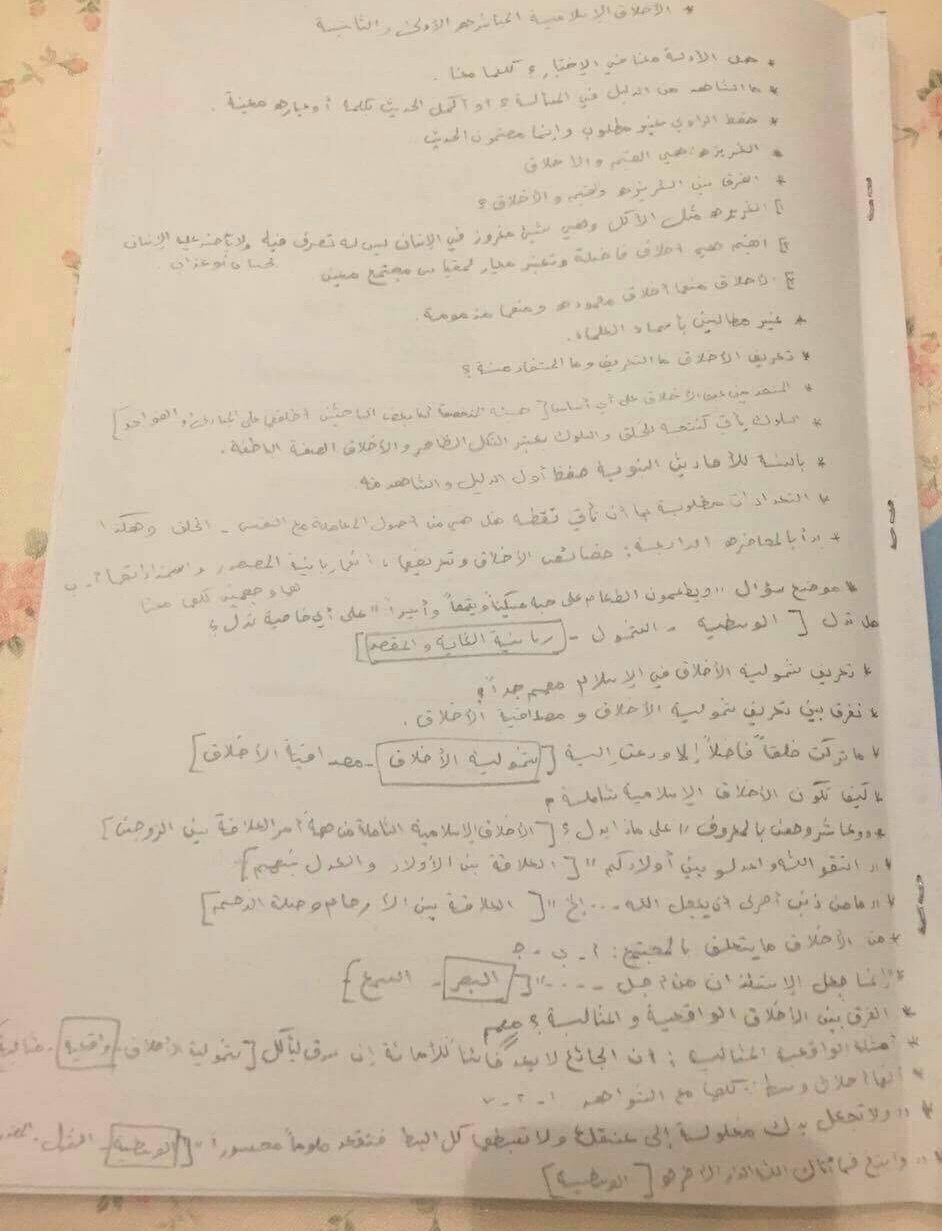 * الأخلاق الإسلامية المحاضره الأولى والثانية
* هل الأدلة معنا في الإختبار؟ كلها معنا.
* ما الشاهد من الدليل في المسألة؟ او أكمل الحديث بكلمة أو عباره معينة.
* حفظ الراوي غير مطلوب وإنما مضمون الحديث
* الغريزه: هي القيم والأخلاق
* الفرق بين الغريزه والقيم والأخلاق؟
الغريزه مثل الأكل وهي شيئ مغروز في الإنسان ليس له تصرف فيه ولا يحاسب عليه الإنسان
القيم هي أخلاق فاضلة وتعتبر معيار لمقياس مجتمع معين
الأخلاق منها أخلاق محموده ومنها مذمومة.
* غير مطالبين بأسماء العلماء.
* تعريف الأخلاق ما التعريف وما المستفاد منه؟
على أي أساس [ على المبادئ والقواعد ]
* السلوك يأتي كنتيجه للخلق والسلوك يعتبر الشكل الظاهر والأخلاق الصفة الباطنه.
* بالنسبة للأحاديث النبوية حفظ أول الدليل والشاهد منه.
* التعدادات مطلوبة بما أن تأتي نقطه هل هي من أصول المعاملة مع النفس - الخلق وهكذا
* بدأ بالمحاضره الرابعة: خصائص الأخلاق وتعريفها، ربانية المصدر أ - ب
كلها معنا
* موضع سؤال "ويطعمون الطعام على حبه مسكيناً ويتيماً وأسيراً" على أي خاصية تدل؟
هل تدل [ الوسطيه - الشمول - ربانية الغاية والمقصد ]
* تعريف شمولية الأخلاق في الإسلام مهم جداً؟
* نفرق بين تعريف شمولية الأخلاق ومصداقية الأخلاق.
* ما تركت خلقاً فاضلاً إلا ودعت إليه [ شمولية الأخلاق - مصداقية الأخلاق ]
* كيف تكون الأخلاق الإسلامية شاملة
* "وعاشروهن بالمعروف" على ماذا تدل؟ [ الأخلاق الإسلامية الشاملة من جهة أمر العلاقة بين الزوجين ]
* "اتقو الله واعدلو بين أولادكم" [ العلاقة بين الأولاد والعدل بينهم ]
* "ما من ذنب أحرى أن يعجل الله ... إلخ" [ العلاقة بين الأرحام وصلة الرحم ]
* من الأخلاق ما يتعلق بالمجتمع: أ - ب - ج
* "إنما جعل الإستئذان من أجل ...." [ البصر - السمع ]
* الفرق بين الأخلاق الواقعية والمثالية؟ مهم
* أمثلة الواقعية المثالية: أن الجائع لا يعد خائناً للأمانة إن سرق ليأكل [ شمولية الأخلاق - واقعية -
* أنها أخلاق وسط: كلها مع الشواهد ١ - ٢ - ٣
* "ولا تجعل يدك مغلولة إلى عنقك ولا تبسطها كل البسط فتقعد ملوماً محسوراً" [ الوسطية -
* "وابتغ فيما آتاك الله الدار الآخره" [ الوسطية ]